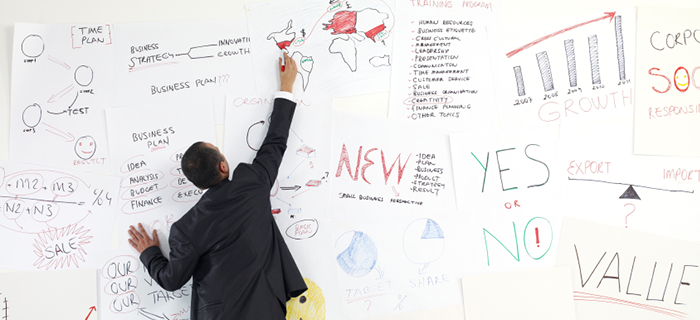 [TIME
PLAN]
TEST
RESULT
BUSINESS
STRATEGY
INNOVATI
GROWTH
BUSINESS PLAN???
TRAINING PROGRAM
- HUMAN RESOURCES
- BUSINESS ETIQUETTE
- CROSS CULTURAL
- MANAGEMENT
- LEADERSHIP
- PRESENTATION
- COMMUNICATION
- TIME MANAGEMENT
- CUSTOMER SERVICE
- SALE
- BUSINESS ORGANISATION
- CREATIVITY
- FINANCE PLANNING
- OTHER TOPICS
2007 2008 2009 2010 2011
GROWTH
CORPO
SO
RESPONSIB
BUSINESS
PLAN
IDEA
ANALYSIS
BUDGET
FINANCE
ORGAN
BACK
PLAN
NEW
IDEA
PLAN
BUSINESS
PRODUCT
STRATEGY
RESULT
SMALL BUSINESS PERSPECTIVE
TARGET
% SHARE
YES
OR
NO!
EXPORT IMPORT
?
VALUE
+ M2 + M3
N2 + N3
%
SALE
OUR
OUR
OUR
TARGET